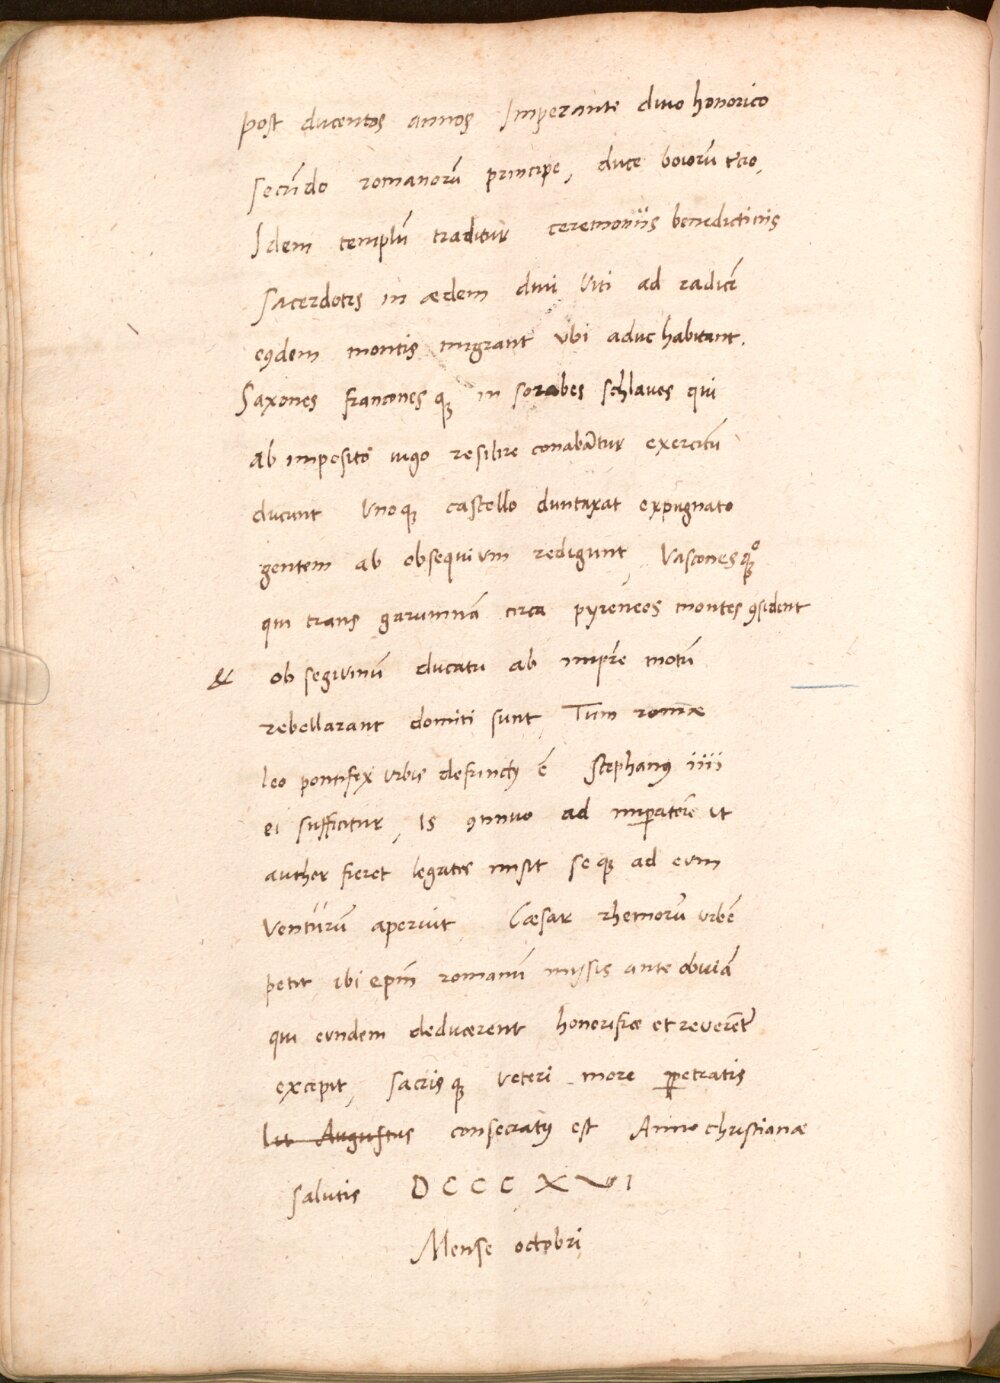 post ducentos annos Imperante diuo honorico
secũdo romanorũ principe, duce boiorũ
Idem templũ traditur ceremoniis benedictinis
sacerdotes in ædem diui Viti ad radicẽ
eꝰdem montis migrant vbi aduc habitant.
Saxones francones qꝫ in sorabes schlaues qui
ab imposito iugo resilire conabãtur exercitũ
ducunt Vno qꝫ castello duntaxat expugnato
gentem ab obsequium redigunt, Vascones qꝫ
qui trans garumnã circa pyreneos montes ꝯsident
& ob seguinũ ducatu ab impr̃e motũ
rebellarant domiti sunt, Tum romæ
leo pontifex vrbis defunctꝰ ẽ Stephanꝰ iiii
ei sufficitur, Is ꝯnnuo ad imꝑatorẽ ut
author fieret legatis misit se qꝫ ad eum
Venturũ aperuit Cæsar rhemorũ vrbẽ
petit ibi ep̃m romanũ missis ante obuiã
qui eundem deducerent honorifice et reuerẽtr̃
excepit, sacris qꝫ veteri more ꝑpetratis
Augustus consecratꝰ est Anno christianæ
salutis D C C C X V I
Mense octobri